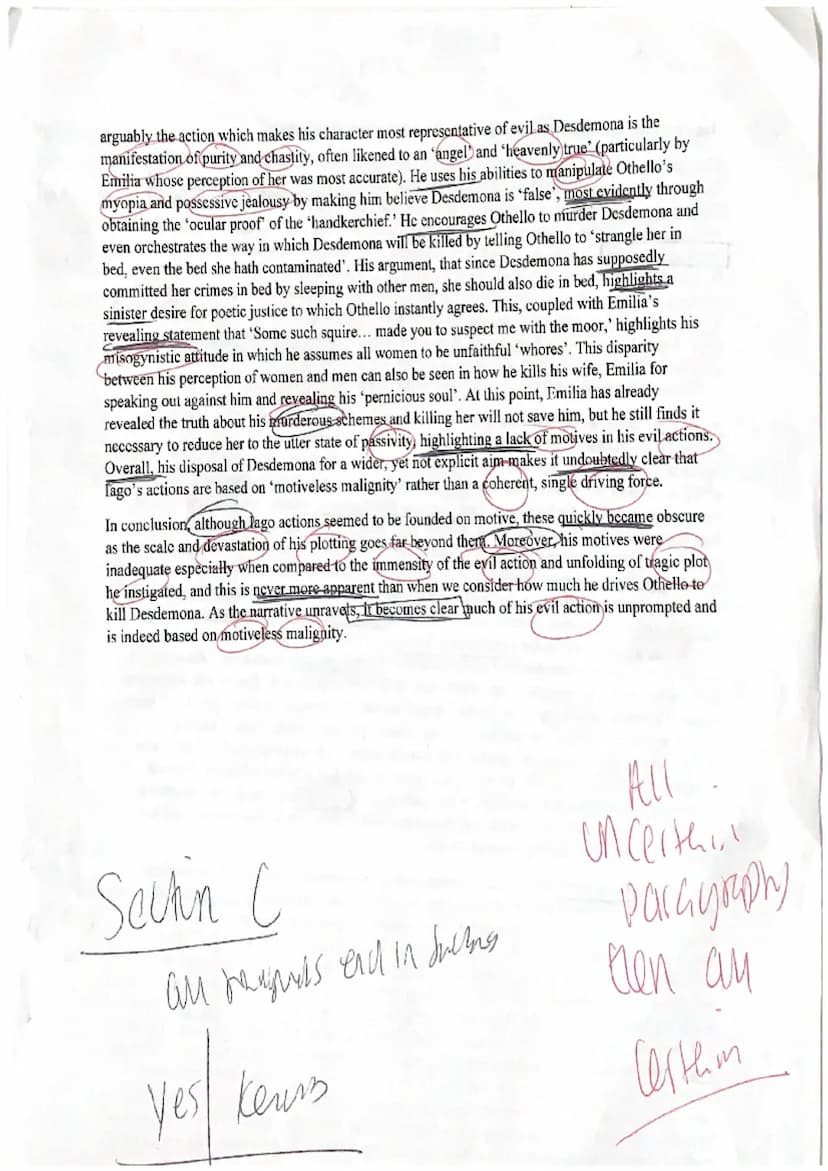 arguably the action which makes his character most representative of evil as Desdemona is the
manifestation of purity and chastity, often likened to an 'angel' and 'heavenly true' (particularly by
Emilia whose perception of her was most accurate). He uses his abilities to manipulate Othello's
myopia and possessive jealousy by making him believe Desdemona is 'false', most evidently through
obtaining the 'ocular proof' of the 'handkerchief.' He encourages Othello to murder Desdemona and
even orchestrates the way in which Desdemona will be killed by telling Othello to 'strangle her in
bed, even the bed she hath contaminated'. His argument, that since Desdemona has supposedly
committed her crimes in bed by sleeping with other men, she should also die in bed, highlights a
sinister desire for poetic justice to which Othello instantly agrees. This, coupled with Emilia's
revealing statement that 'Some such squire... made you to suspect me with the moor,' highlights his
misogynistic attitude in which he assumes all women to be unfaithful 'whores'. This disparity
between his perception of women and men can also be seen in how he kills his wife, Emilia for
speaking out against him and revealing his 'pernicious soul'. At this point, Emilia has already
revealed the truth about his murderous schemes and killing her will not save him, but he still finds it
necessary to reduce her to the utter state of passivity, highlighting a lack of motives in his evil actions.
Overall, his disposal of Desdemona for a wider, yet not explicit aim makes it undoubtedly clear that
Iago's actions are based on 'motiveless malignity' rather than a coherent, single driving force.
In conclusion, although Iago actions seemed to be founded on motive, these quickly became obscure
as the scale and devastation of his plotting goes far beyond them. Moreover, his motives were
inadequate especially when compared to the immensity of the evil action and unfolding of tragic plot
he instigated, and this is never more apparent than when we consider how much he drives Othello to
kill Desdemona. As the narrative unravels, it becomes clear much of his evil action is unprompted and
is indeed based on motiveless malignity.
All
uncerthin
paragraphs
then all
certhin
Section C
all end in
Yes